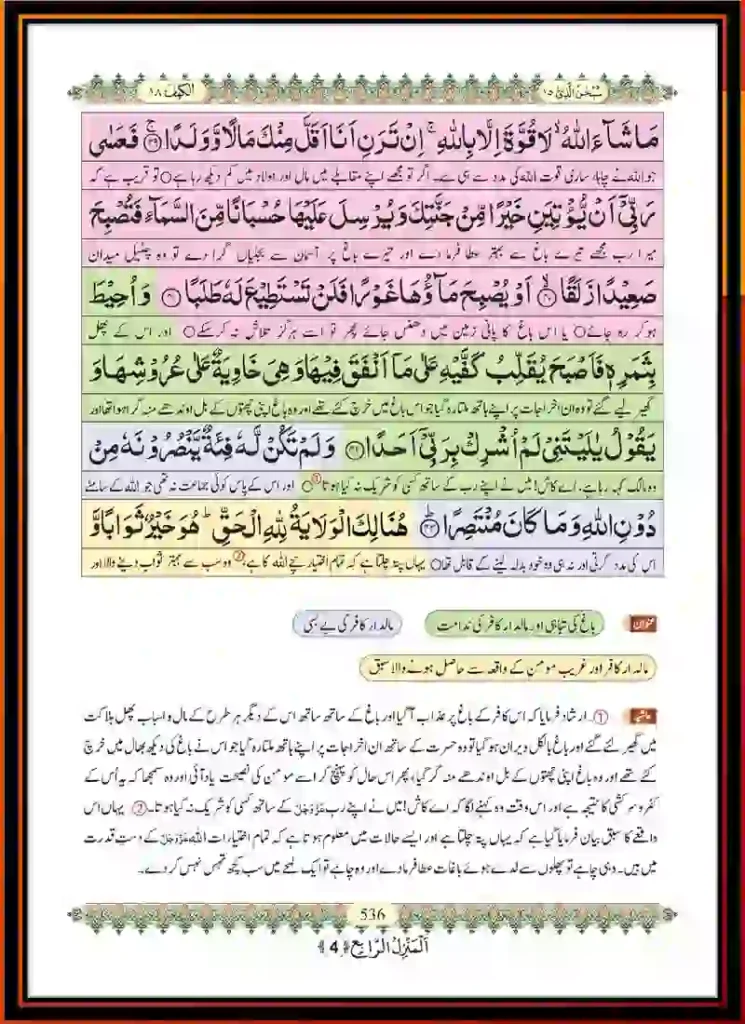 سُبْحٰنَ الَّذِیْۤ ۱۵
الكهف ۱۸
مَا شَآءَ اللّٰهُ ۙ لَا قُوَّةَ اِلَّا بِاللّٰهِ ۚ اِنْ تَرَنِ اَنَا اَقَلَّ مِنْكَ مَالًا وَّ وَلَدًا ﴿۳۹﴾ۚ فَعَسٰى
جو اللہ نے چاہا، ساری قوت اللہ کی مدد سے ہی ہے۔ اگر تو مجھے اپنے مقابلے میں مال اور اولاد میں کم دیکھ رہا ہے ○ تو قریب ہے کہ
رَبِّیْۤ اَنْ یُّؤْتِیَنِ خَیْرًا مِّنْ جَنَّتِكَ وَ یُرْسِلَ عَلَیْهَا حُسْبَانًا مِّنَ السَّمَآءِ فَتُصْبِحَ
میرا رب مجھے تیرے باغ سے بہتر عطا فرما دے اور تیرے باغ پر آسمان سے بجلیاں گرا دے تو وہ چٹیل میدان
صَعِیْدًا زَلَقًا ﴿۴۰﴾ۙ اَوْ یُصْبِحَ مَآؤُهَا غَوْرًا فَلَنْ تَسْتَطِیْعَ لَهٗ طَلَبًا ﴿۴۱﴾ وَ اُحِیْطَ
ہو کر رہ جائے ○ یا اس باغ کا پانی زمین میں دھنس جائے پھر تو اسے ہرگز تلاش نہ کرسکے ○ اور اس کے پھل
بِثَمَرِهٖ فَاَصْبَحَ یُقَلِّبُ كَفَّیْهِ عَلٰى مَاۤ اَنْفَقَ فِیْهَا وَ هِیَ خَاوِیَةٌ عَلٰى عُرُوْشِهَا وَ
گھیر لیے گئے تو وہ ان اخراجات پر اپنے ہاتھ ملتا رہ گیا جو اس باغ میں خرچ کئے تھے اور وہ باغ اپنی چھتوں کے بل اوندھے منہ گرا ہوا تھا اور
یَقُوْلُ یٰلَیْتَنِیْ لَمْ اُشْرِكْ بِرَبِّیْۤ اَحَدًا ﴿۴۲﴾ وَ لَمْ تَكُنْ لَّهٗ فِئَةٌ یَّنْصُرُوْنَهٗ مِنْ
وہ مالک کہہ رہا ہے، اے کاش! میں نے اپنے رب کے ساتھ کسی کو شریک نہ کیا ہوتا ① ○ اور اس کے پاس کوئی جماعت نہ تھی جو اللہ کے سامنے
دُوْنِ اللّٰهِ وَ مَا كَانَ مُنْتَصِرًا ﴿۴۳﴾ؕ هُنَالِكَ الْوَلَایَةُ لِلّٰهِ الْحَقِّ ؕ هُوَ خَیْرٌ ثَوَابًا وَّ
اس کی مدد کرتی اور نہ ہی وہ خود بدلہ لینے کے قابل تھا ○ یہاں پتہ چلتا ہے کہ تمام اختیار سچے اللہ کا ہے، ② وہ سب سے بہتر ثواب دینے والا اور
عنوان
باغ کی تباہی اور مالدار کافر کی ندامت
مالدار کافر کی بے بسی
مالدار کافر اور غریب مومن کے واقعہ سے حاصل ہونے والا سبق
حاشیہ
①۔ ارشاد فرمایا کہ اس کافر کے باغ پر عذاب آ گیا اور باغ کے ساتھ ساتھ اس کے دیگر ہر طرح کے مال و اسباب پھل ہلاکت
میں گھیر لئے گئے اور باغ بالکل ویران ہو گیا تو وہ حسرت کے ساتھ ان اخراجات پر اپنے ہاتھ ملتا رہ گیا جو اس نے باغ کی دیکھ بھال میں خرچ
کئے تھے اور وہ باغ اپنی چھتوں کے بل اوندھے منہ گر گیا، پھر اس حال کو پہنچ کر اسے مومن کی نصیحت یاد آئی اور وہ سمجھا کہ یہ اُس کے
کفر و سرکشی کا نتیجہ ہے اور اس وقت وہ کہنے لگا کہ اے کاش! میں نے اپنے رب عَزَّوَجَلَّ کے ساتھ کسی کو شریک نہ کیا ہوتا۔ ②۔ یہاں اس
واقعے کا سبق بیان فرمایا گیا ہے کہ یہاں پتہ چلتا ہے اور ایسے حالات میں معلوم ہوتا ہے کہ تمام اختیارات اللہ عَزَّوَجَلَّ کے دستِ قدرت
میں ہیں۔ وہی چاہے تو پھلوں سے لدے ہوئے باغات عطا فرمادے اور وہ چاہے تو ایک لمحے میں سب کچھ تہس نہس کر دے۔
536
اَلْمَنْزِلُ الرَّابِع ﴿4﴾